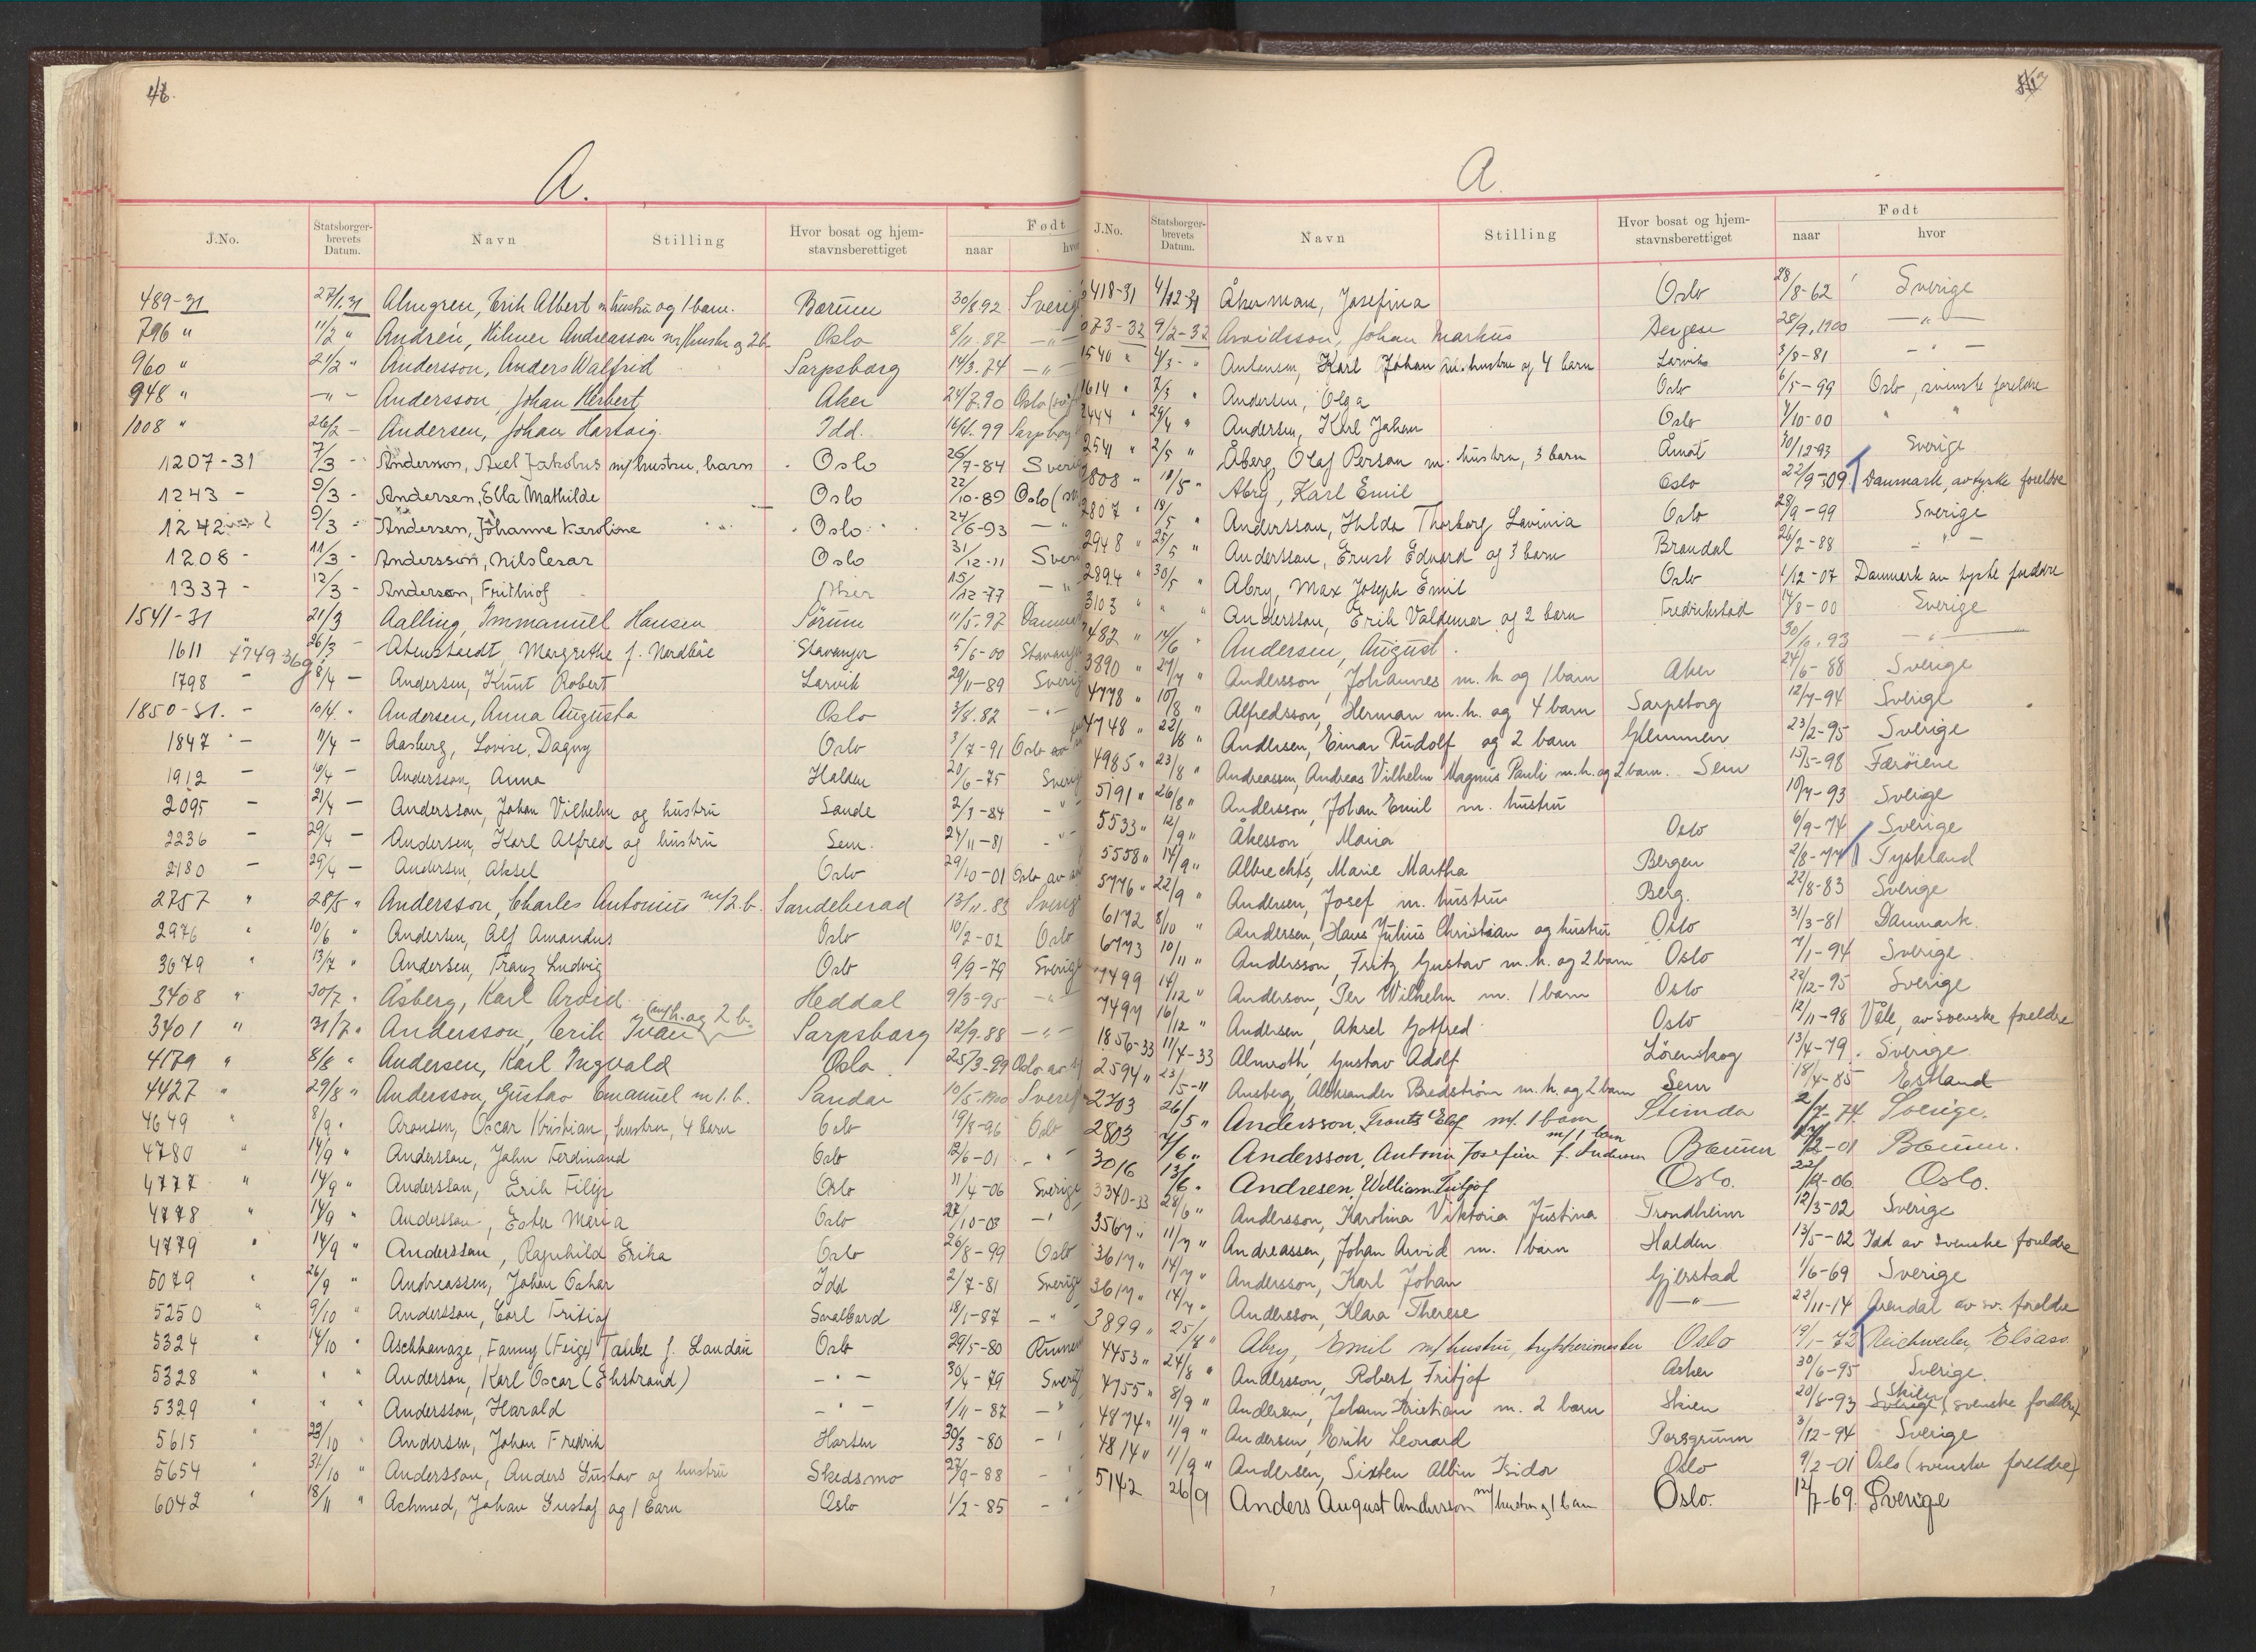 48.
A.
J.No. Statsborger-brevets Datum. Navn Stilling Hvor bosat og hjem-stavnsberettiget Født naar hvor
489-31 27/1 31 Almgren, Erik Albert m hustru og 1 barn. Bærum 30/8 92 Sverig
796 " 11/2 " Andrén, Hilmer Andreasson m/hustru og 2 b Oslo 8/11. 87 — " —
960 " 21/2 " Andersson, Anders Walfrid Sarpsborg 14/3. 74 — " —
948 " — " — Andersson, Johan Herbert Aker 24/7. 90 Oslo
1008 " 26/2 — Andersen, Johan Hartvig. Idd. 99 Sarpsborg
1207-31 7/3 - Andersson, Axel Jakobus m/hustru, barn Oslo 26/7-84 Sverig
1243 - 9/3 - Andersen, Ella Mathilde Oslo 22/10-89 Oslo
1242 9/3 - Andersen, Johanne Karoline Oslo 24/6-93 — "
1208 - 11/3 - Andersson, Nils Cesar Oslo 31/12-11 Sveri
1337 - 12/3 - Anderson, Frithiof Aker 15/12-77 — "
1541-31 21/3 Aalling, Immanuel Hansen Sørum 11/5-97 Danmar
1611 26/3 — Abenstaedt, Margrethe f. Nordbøe Stavanger 5/6-00 Stavange
1798 - 8/4 — Andersen, Knut Robert Larvik 29/11-89 Sverig
1850-31. - 10/4. " Andersen, Anna Augusta Oslo 3/8. 82 — " —
1847 " — 11/4 — Aasberg, Lovise, Dagny Oslo 3/7-91 Oslo
1912 — 16/4 — Andersson, Anna Halden 20/6-75 Sverig
2095 — 21/4 — Andersson, Johan Vilhelm og hustru Sande 2/3-84 - " -
2236 — 29/4 — Andersen, Karl Alfred og hustru Sem. 24/11-81 - " -
2180 — 29/4 — Andersen, Aksel Oslo 29/10-01 Oslo av
2757 " 28/5 " Andersson, Charles Antonius m/2. b. Sandeherad 13/11. 83 Sverig
2976 " 10/6 " Andersen, Alf Amandus Oslo 10/2-02 Oslo
3679 " 13/7 " Andersen, Franz Ludvig Oslo 9/9-79 Sverige
3408 " 30/7 " Åsberg, Karl Arvid Heddal 9/3-95 — " —
3401 " 31/7 " Andersson, Erik Ivan (m/h. og 2 b. Sarpsborg 12/9. 88 — " —
4179 " 8/8 " Andersen, Karl Ingvald Oslo 25/3-99 Oslo av
4427 " 29/8 " Andersson, Gustav Emanuel m 1. b. Sandar 10/5-1900 Sverig
4649 " 8/9 " Aronsen, Oscar Kristian, hustru, 4 barn Oslo 19/8-96 Oslo
4780 " 14/9 " Andersson, John Ferdinand Oslo 12/6-01 - " -
4777 " 14/9 " Andersson, Erik Filip Oslo 11/4-06 Sverige
4778 " 14/9 " Andersson, Ester Maria Oslo 27/10-03 — "
4779 " 14/9 " Andersson, Ragnhild Erika Oslo 26/8-99 Oslo
5079 " 26/9 " Andreassen, Johan Oskar Idd 2/7-81 Sverige
5250 " 9/10 " Andersson, Carl Fritiof Svalbard 18/1-87 — "
5324 " 14/10 " Aschkanaze, Fanny (Feige) Taube f. Landau Oslo 29/5-80 Rumen
5328 " " " Anderson, Karl Oscar (Ekstrand) — " — 30/4-79 Sverig
5329 " " " Andersson, Harald — " — 1/11-87 — "
5615 " 23/10 " Andersen, Johan Fredrik Horten 30/3-80 — "
5654 " 31/10 " Andersson, Anders Gustav og hustru Skedsmo 27/9-88 - "
6042 " 18/11 " Achmed, Johan Gustaf og 1 barn Oslo 1/2-85 - "
A.
J.No. Statsborger-brevets Datum. Navn Stilling Hvor bosat og hjem-stavnsberettiget Født naar hvor
418-31 4/12-31 Åkerman, Josefina Oslo 28/8-62 Sverige
73-32 9/2-32 Arvidsson, Johan Markus Bergen 28/9, 1900 — " —
1540 " 4/3- " Antonsen, Karl Johan m. hustru og 4 barn Larvik 3/8-81 - " -
1614 " 7/3 " Andersen, Olga Oslo 6/5-99 Oslo, svenske foreldre
2444 " 29/4 " Andersen, Karl Johan Oslo 7/10-00 " "
2541 " 2/5 " Åberg, Olaf Persan m. hustru, 3 barn Åmot 30/12-93 Sverige
2808 " 18/5 " Abry, Karl Emil Oslo 22/9-09 Danmark, av tyske foreldre
2807 " 18/5 " Andersson, Hilda Thorborg Lavinia Oslo 28/9-99 Sverige
2948 " 25/5 " Andersson, Ernst Edvard og 3 barn Brandal 26/2-88 - " -
2894 " 30/5 " Abry, Max Joseph Emil Oslo 1/12-07 Danmark av tyske foreldre
3103 " " " Andersson, Erik Valdemar og 2 barn Fredrikstad 14/8-00 Sverige
3482 " 14/6 " Andersen, August. 93 — " —
3890 " 27/7 " Andersson, Johannes m. h. og 1 barn Aker 24/6-88 Sverige
4778 " 10/8 " Alfredsson, Herman m. h. og 4 barn Sarpsborg 12/7-94 Sverige
4748 " 22/8 " Andersen, Einar Rudolf og 2 barn Glemmen 23/2-95 Sverige
4985 " 23/8 " Andreassen, Andreas Vilhelm Magnus Pauli m. h. og 2 barn. Sem 15/5-98 Færøiene
5791 " 26/8 " Andersson, Johan Emil m. hustru 10/7-93 Sverige
5533 " 12/9 " Åkesson, Maria Oslo 6/9-74 Sverige
5558 " 14/9 " Albrechts, Marie Martha Bergen 2/8-77 Tyskland
5776 " 22/9 " Andersen, Josef m. hustru Berg. 22/8-83 Sverige
6172 8/10 " Andersen, Hans Julius Christian og hustru Oslo 31/3-81 Danmark.
6773 10/11 " Andersson, Fritz Gustav m. h. og 2 barn Oslo 7/1-94 Sverige.
7499 14/12 " Anderson, Per Wilhelm m. 1 barn Oslo 22/12-95 Sverige
7497 16/12 " Andersen, Aksel Gotfred Oslo 12/11-98 Våle, av svenske foreldre
1856-33 11/4-33 Almroth, Gustav Adolf Lørenskog 13/4-79. Sverige.
2594 " 23/5-" Ansberg, Aleksander Bredstrøm m. h. og 2 barn Sem 18/4-85 Estland
2703 26/5 " Andersson, Frants Elof m/. 1 barn 2/7-74 Sverige.
2803 7/6 " Andersson, Antonie Josefine f. Andersen m/1 barn Bærum -01 Bærum.
3016 13/6 " Andresen, William Fritjof Oslo. -06 Oslo.
3340-33 28/6 " Andersson, Karolina Viktoria Justina Trondheim 12/3-02 Sverige
3567 " 11/7 " Andreassen, Johan Arvid m. 1 barn Halden 13/5-02 Idd av svenske foreldre
3617 " 14/7 " Andersson, Karl Johan Gjerstad 1/6-69 Sverige
3617 " 14/7 " Andersson, Klara Therese — " — 22/11-14 Arendal av sv. foreldre
3899 " 25/7 " Abry, Emil m/hustru, trykkerimester Oslo 19/1-72 Reichweiler, Elsass.
4453 " 24/8 " Andersson, Robert Fritjof Asker 30/6-95 Sverige.
4755 " 8/9 " Andersen, Johan Kristian m. 2 barn Skien 20/8-93 Skien (svenske foreldre)
4874 " 11/9 " Andersen, Erik Leonard Porsgrunn 3/12-94 Sverige
4814 " 11/9 " Andersen, Sixten Albin Isidor Oslo 9/2-01 Oslo (svenske foreldre)
5142 26/9 Anders August Andersson m/hustru og 1 barn Oslo. 12/7-69. Sverige